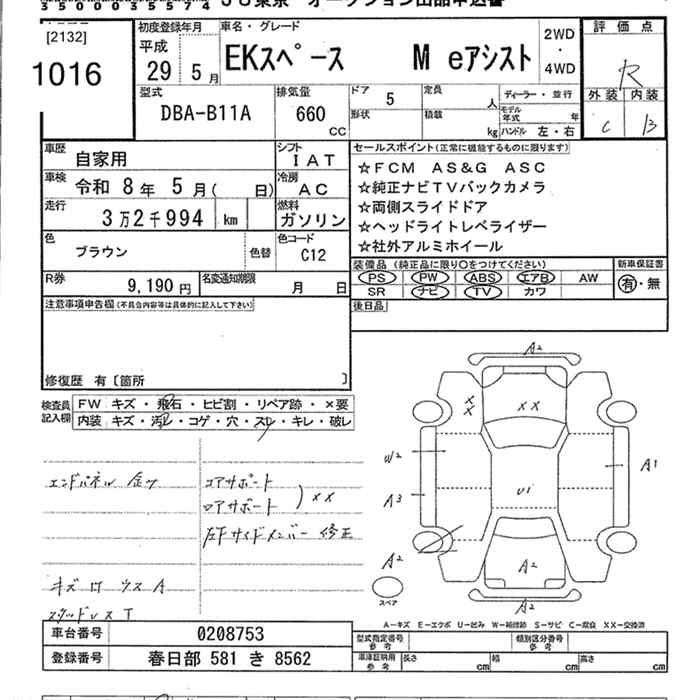 35000035574 JU東京 オークション出品申込書
[2132]
1016
初度登録年月
平成
29 5月
車名・グレード
EKスペース M eアシスト
2WD
・
4WD
評価点
R
外装 内装
C B
型式
DBA-B11A
排気量
660
CC
ドア 5
形状
定員 人
積載 kg
ディーラー・並行
モデル年式 年
ハンドル 左・右
車歴
自家用
シフト
IAT
車検
令和 8年 5月( 日)
冷房
AC
走行
3万2千994 km
燃料
ガソリン
色
ブラウン
色替
色コード
C12
R券
9,190円
名変通知期限
月 日
セールスポイント(正常に機能するものに限ります)
☆FCM AS&G ASC
☆純正ナビTVバックカメラ
☆両側スライドドア
☆ヘッドライトレベライザー
☆社外アルミホイール
装備品 (純正品に限り○をつけてください)
PS PW ABS エアB AW
SR ナビ TV カワ
新車保証書
有・無
後日品
注意事項申告欄(不具合内容等は具体的に記入して下さい)
修復歴 有〔箇所 〕
検査員記入欄
FW キズ・飛石・ヒビ割・リペア跡・×要
内装 キズ・汚レ・コゲ・穴・スレ・キレ・破レ
エンドパネル
コアサポート
ロアサポート
)××
左Fサイドメンバー 修正
スタッドレス T
A2
×
×
××
W2
A1
U1
A3
A2
A2
A2
スペア
A-キズ E-エクボ U-凹み W-補修跡 S-サビ C-腐食 XX-交換済
車台番号 0208753
登録番号 春日部 581 き 8562
型式指定番号
参考
類別区分番号
参考
車庫証明用
参考
長さ cm
幅 cm
高さ cm